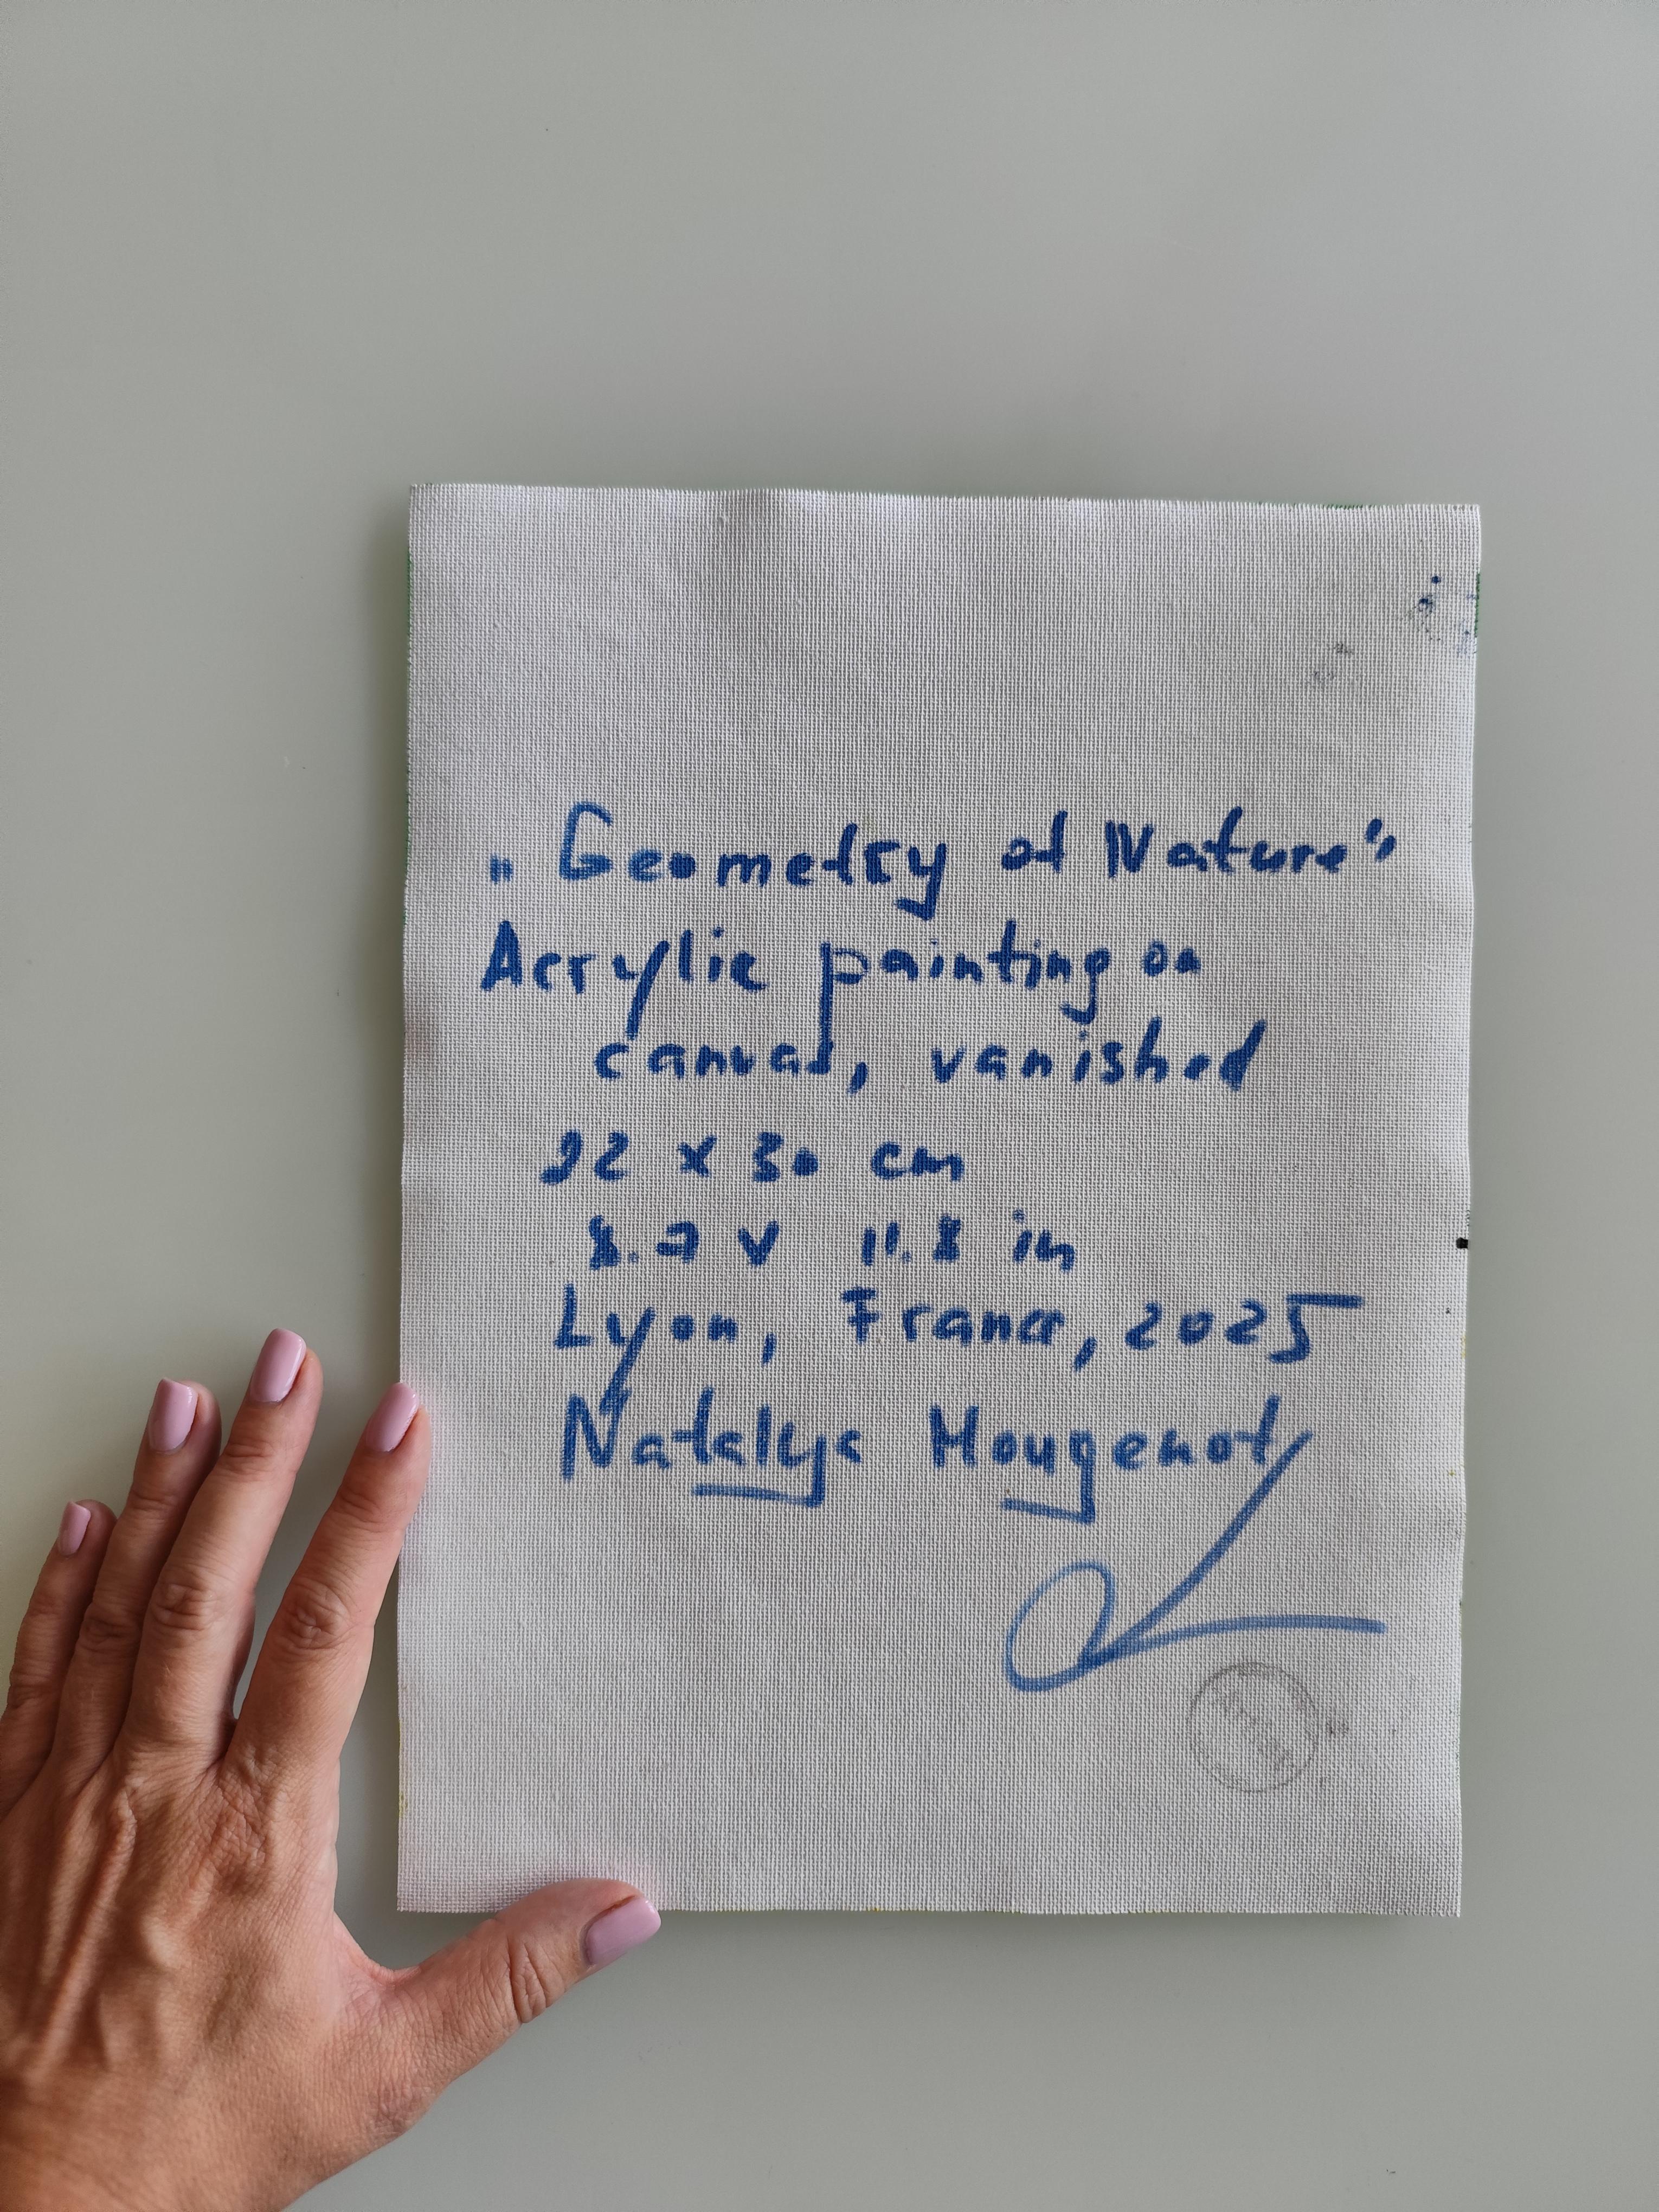 „Geometry of Nature"
Acrylic painting on
canvas, vanished
22 x 30 cm
8.7 x 11.8 in
Lyon, France, 2025
Natalya Mougenot